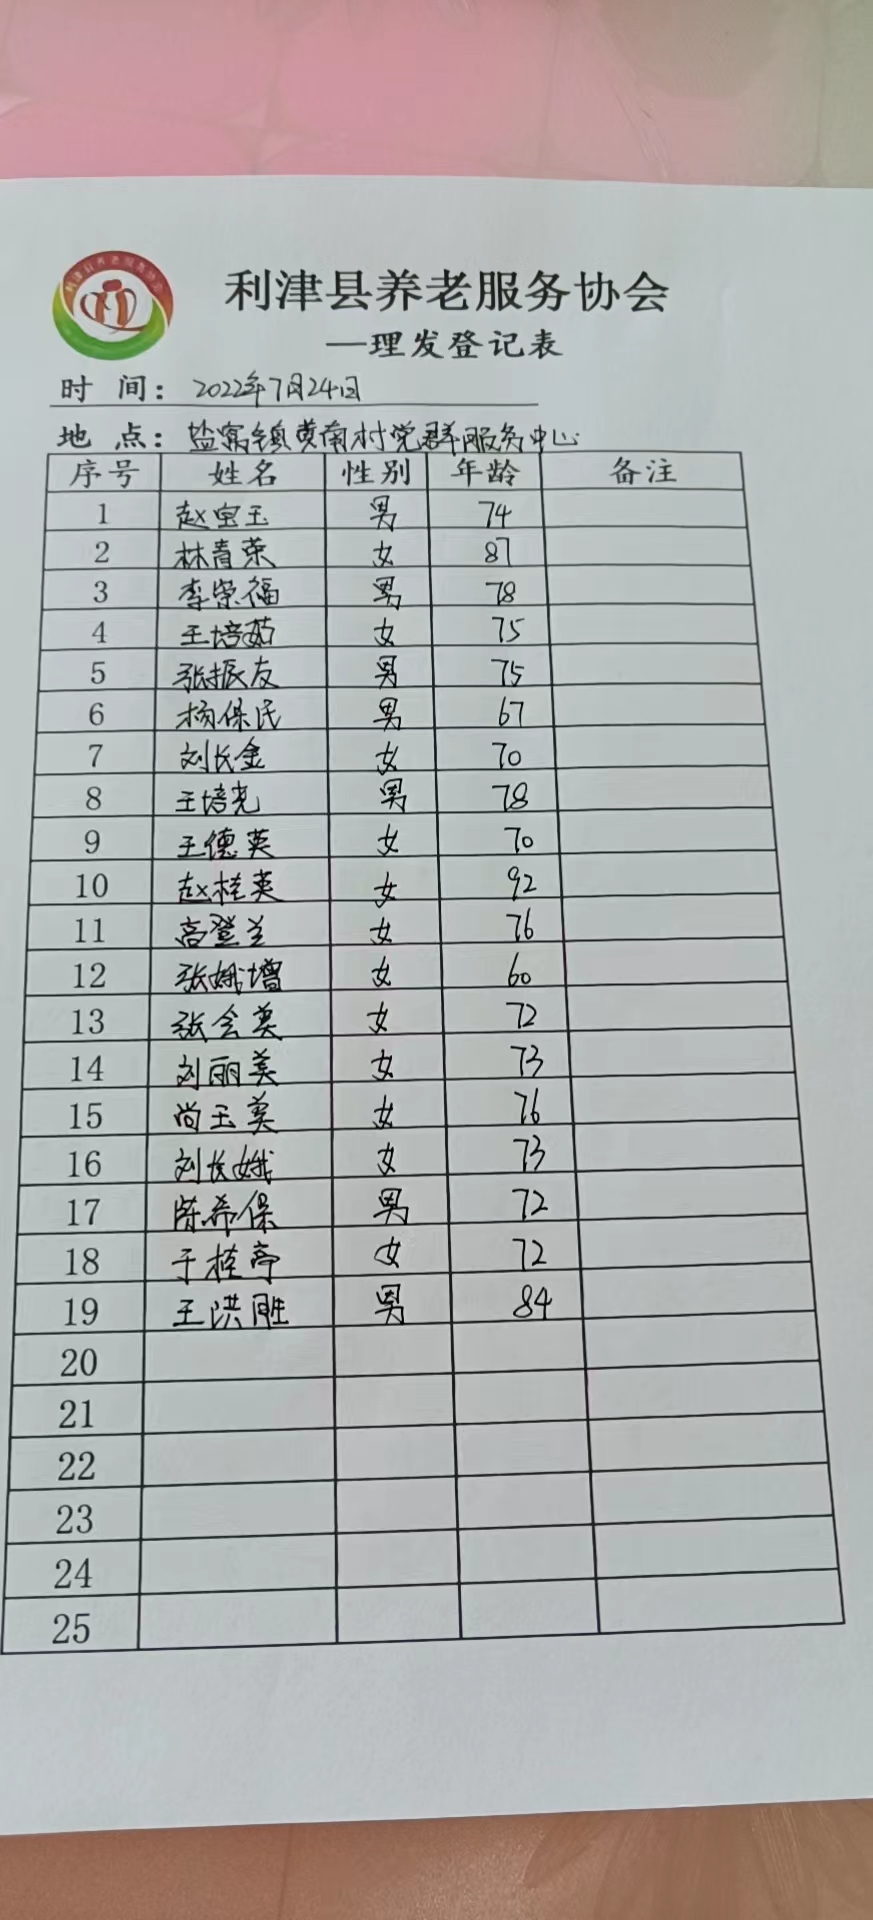 利津县养老服务协会
利津县养老服务协会
—理发登记表
时 间： 2022年7月24日
地 点： 盐窝镇黄南村党群服务中心
序号 姓名 性别 年龄 备注
1 赵宝玉 男 74
2 林青荣 女 87
3 李荣福 男 78
4 王培茹 女 75
5 张振友 男 75
6 杨保民 男 67
7 刘长金 女 70
8 王培尧 男 78
9 王德英 女 70
10 赵桂英 女 92
11 高登兰 女 76
12 张娥增 女 60
13 张会英 女 72
14 刘丽美 女 73
15 尚玉美 女 76
16 刘长娥 女 73
17 陈希保 男 72
18 于桂亭 女 72
19 王洪胜 男 84
20
21
22
23
24
25